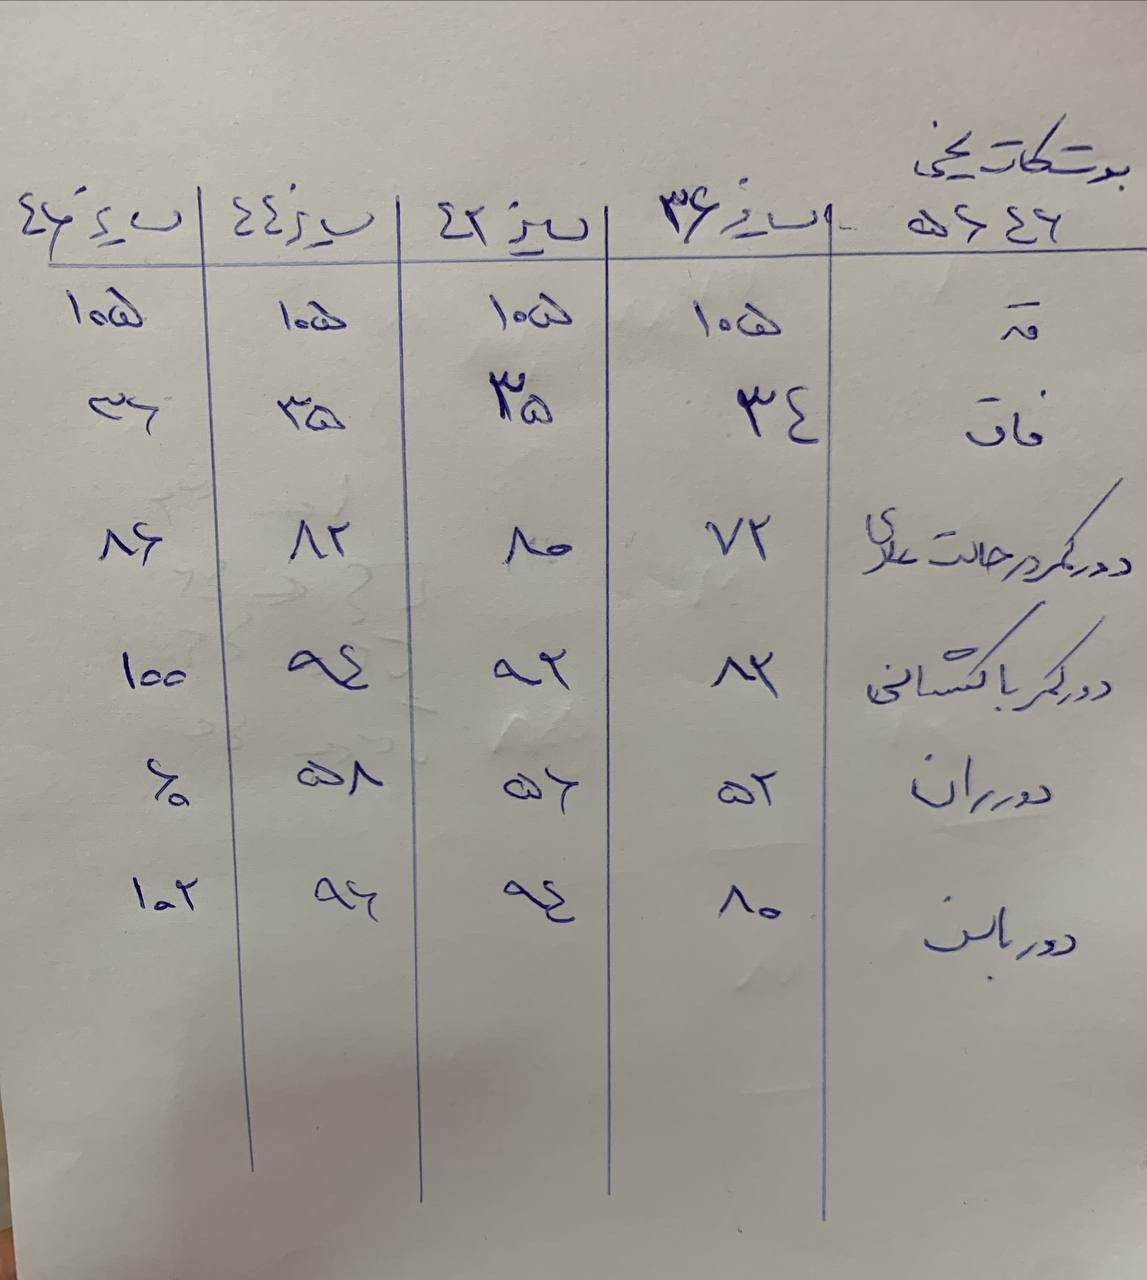 بوت کات یخی
۵۶۴۶ | سایز ۳۶ | سایز ۴۲ | سایز ۴۴ | سایز ۴۶
قد | ۱۰۵ | ۱۰۵ | ۱۰۵ | ۱۰۵
فاق | ۳۴ | ۳۵ | ۳۵ | ۳۶
دور کمر در حالت عادی | ۷۲ | ۸۰ | ۸۲ | ۸۶
دور کمر با کشسانی | ۸۲ | ۹۲ | ۹۴ | ۱۰۰
دور ران | ۵۲ | ۵۶ | ۵۸ | ۶۰
دور باسن | ۸۰ | ۹۴ | ۹۶ | ۱۰۲